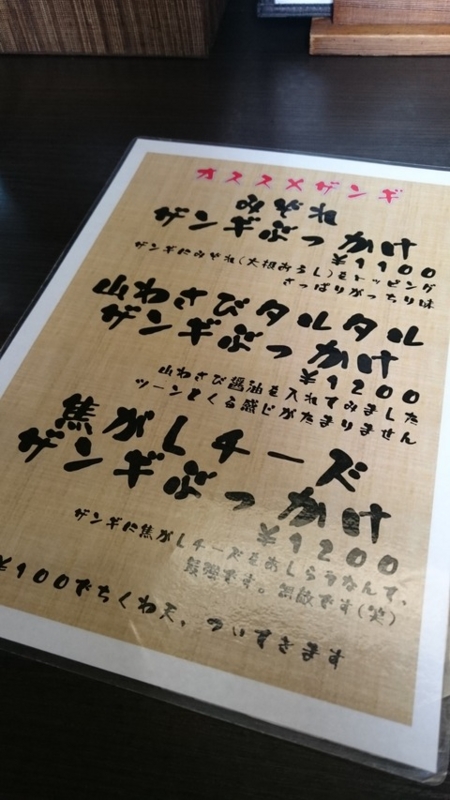 オススメザンギ
みぞれ
ザンギぶっかけ
¥1100
ザンギにみぞれ(大根おろし)をトッピング
さっぱりがっちり味
山わさびタルタル
ザンギぶっかけ
¥1200
山わさび醤油を入れてみました
ツーンとくる感じがたまりません
焦がしチーズ
ザンギぶっかけ
¥1200
ザンギに焦がしチーズをあしらうなんて、
最強です。無敵です(笑)
¥100でちくわ天、ついすきます